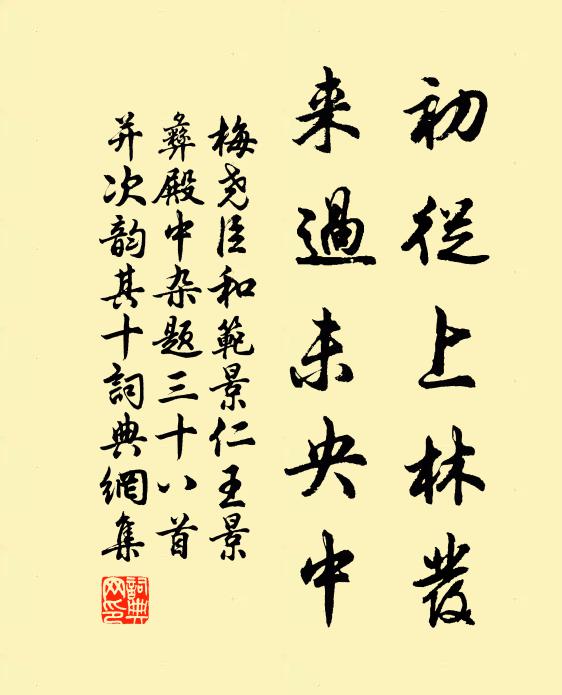 初從上林發
来過未央中
梅尧臣和範景仁王景
彝殿中杂题三十八首
并次韵其十詞典網集
詞典网印